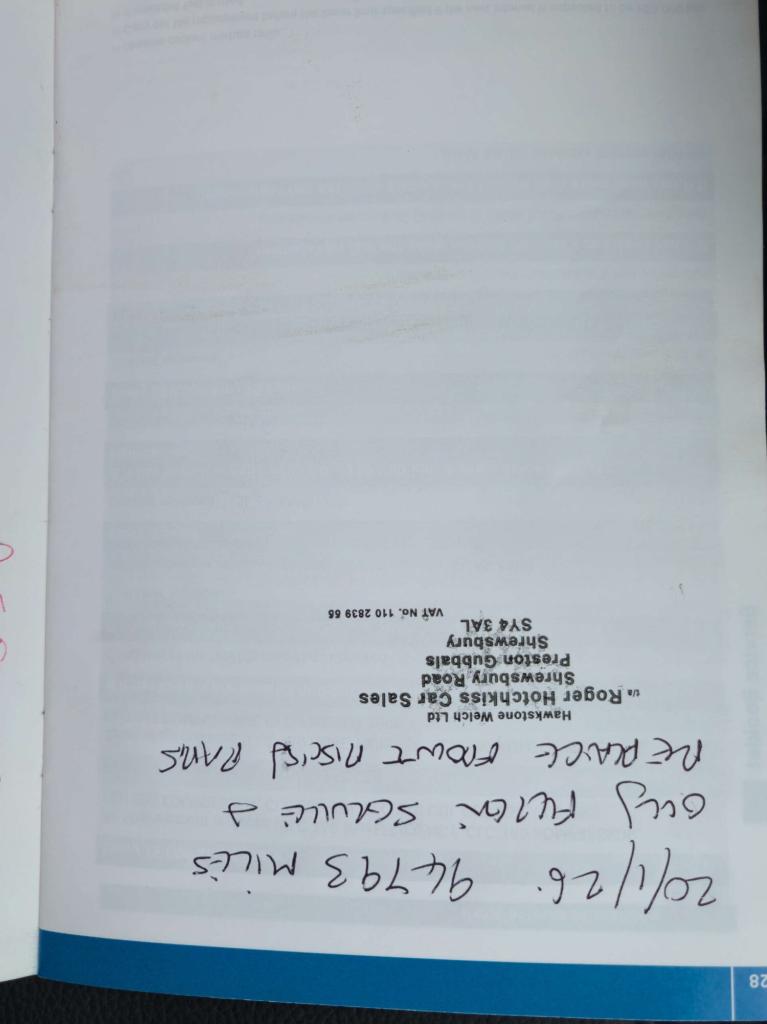 28
20/1/26. 94793 MILES
OIL & FILTER SERVICE &
REPLACE FRONT DISCS & PADS
Hawkstone Welch Ltd
t/a Roger Hotchkiss Car Sales
Shrewsbury Road
Preston Gubbals
Shrewsbury
SY4 3AL
VAT No. 110 2839 55